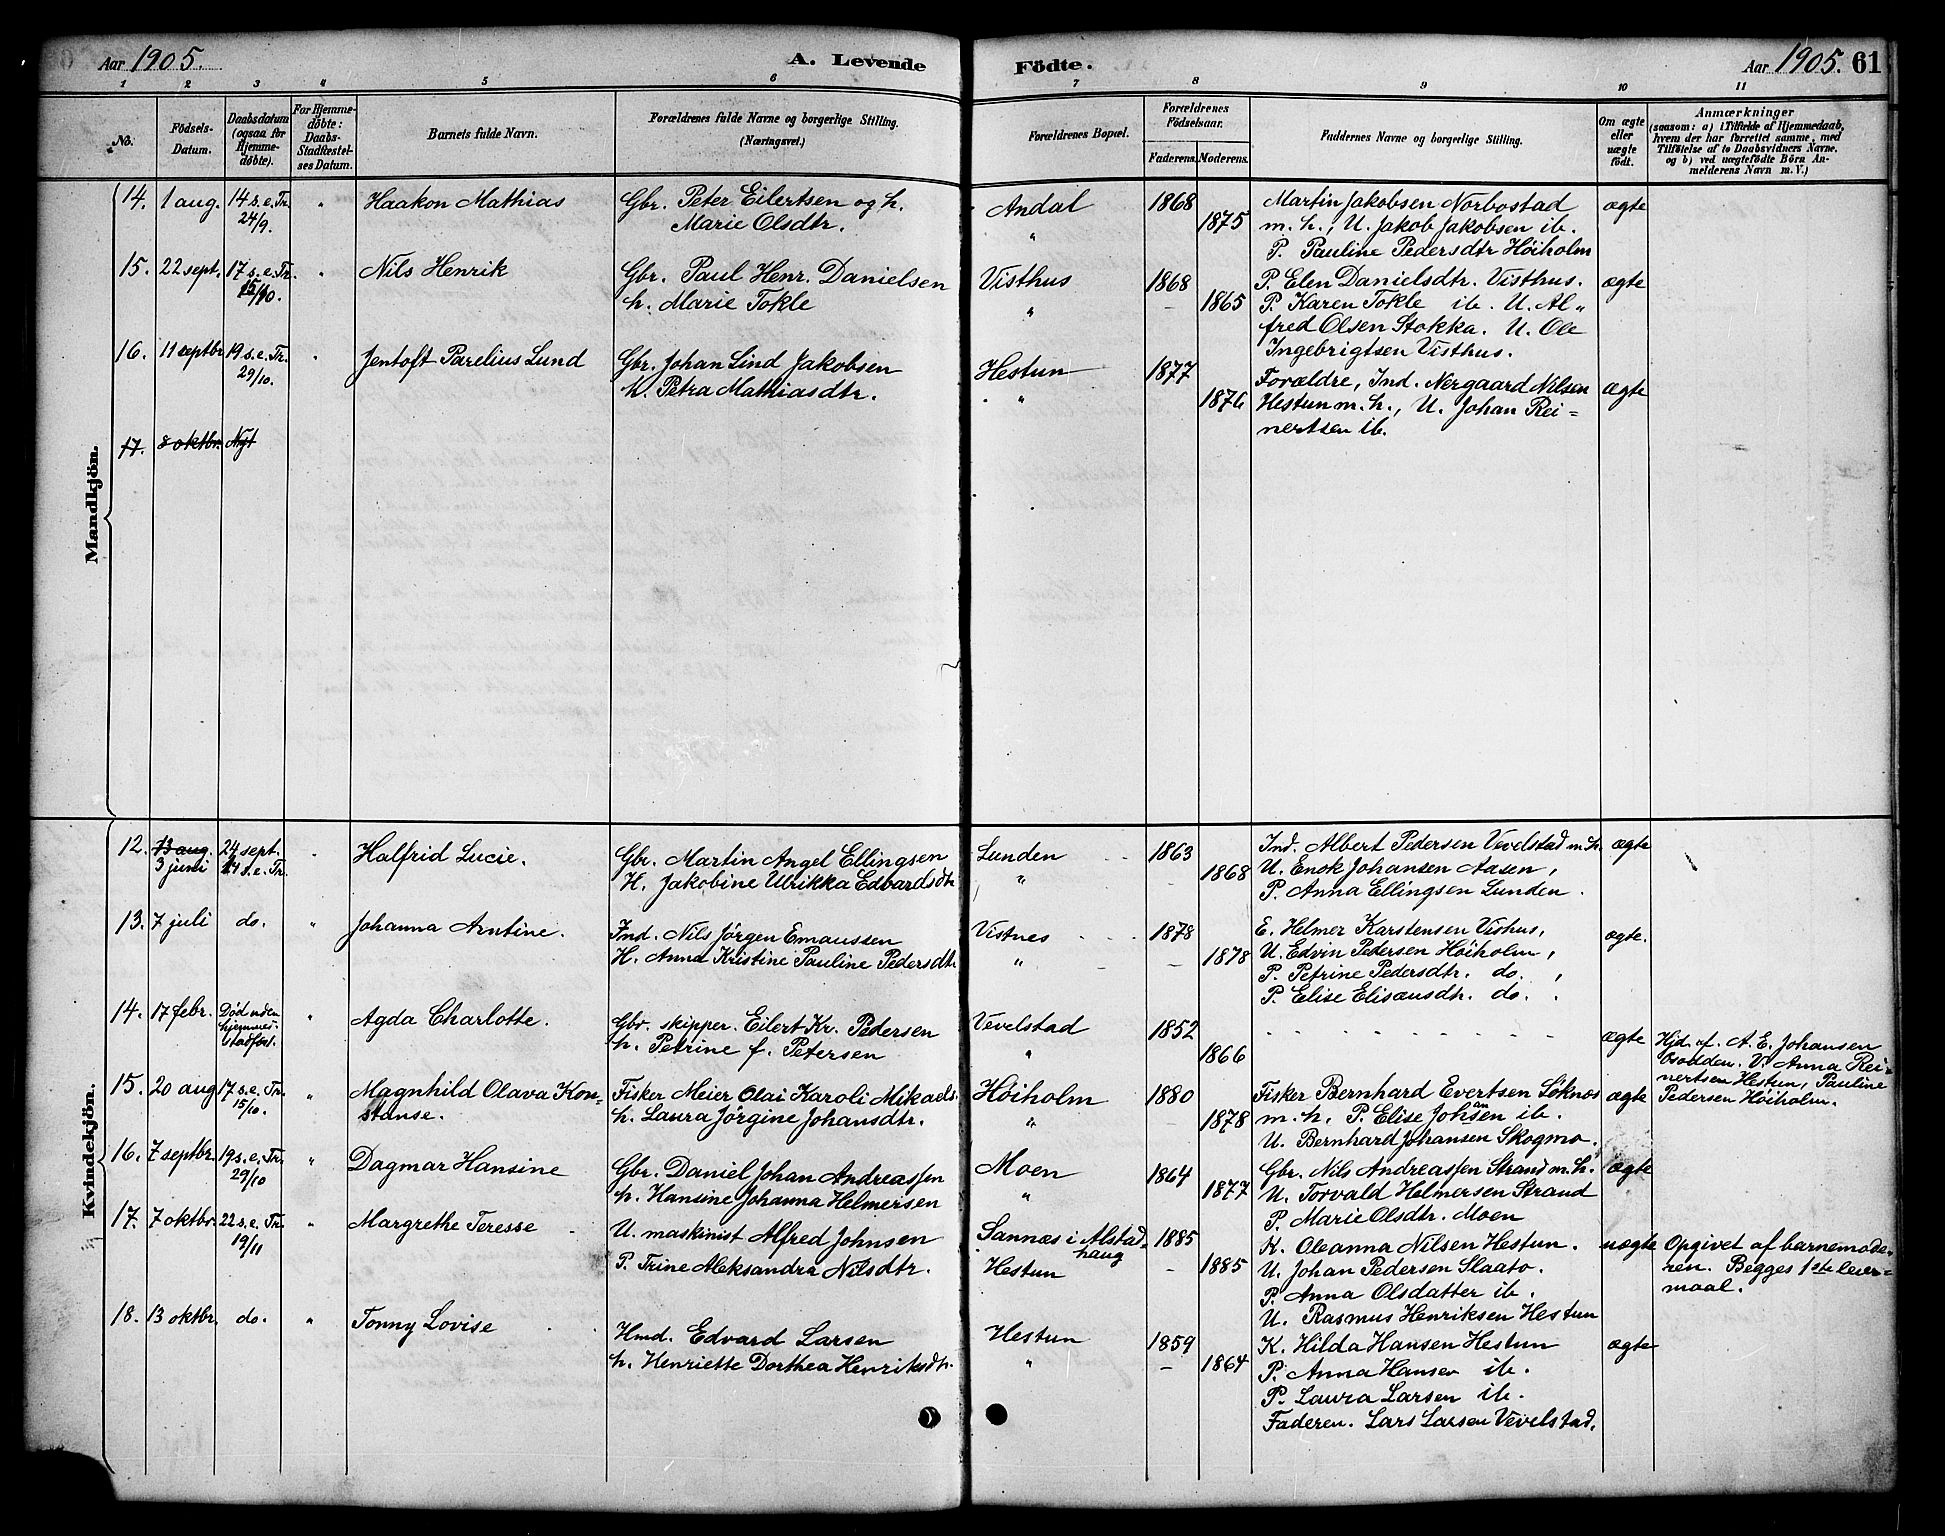 Aar 1905. A. Levende Födte. Aar 1905. 61
1 2 3 4 5 6 7 8 9 10 11
No.
Födsels-Datum.
Daabsdatum (ogsaa for Hjemme-döbte).
For Hjemme-döbte: Daabs-Stadfæstel-ses Datum.
Barnets fulde Navn.
Forældrenes fulde Navne og borgerlige Stilling. (Næringsvei.)
Forældrenes Bopæl.
Forældrenes Födselsaar.
Faderens. Moderens.
Faddernes Navne og borgerlige Stilling.
Om ægte eller uægte födt.
Anmærkninger
(saasom: a) i Tilfælde af Hjemmedaab,
hvem der har forrettet samme, med
Tilföielse af to Daabsvidners Navne,
og b) ved uægtefödte Börn An-
melderens Navn m. V.)
Mandkjön.
14. 1 aug. 14 s. e. Tr. 24/9. " Haakon Mathias Gbr. Peter Eilertsen og h. Andal 1868 Martin Jakobsen Norbostad ægte
Marie Olsdtr. " 1875 m. h., U. Jakob Jakobsen ib.
P. Pauline Pedersdtr Höiholm
15. 22 sept. 17 s. e. Tr. 15/10. " Nils Henrik Gbr. Paul Henr. Danielsen Visthus 1868 P. Elen Danielsdtr. Visthus. ægte
h. Marie Tokle " – 1865 P. Karen Tokle ib. U. Al„
fred Olsen Stokka. U. Ole
Ingebrigtsen Visthus.
16. 11 septbr 19 s. e. Tr. 29/10. " Jentoft Parelius Lund Gbr. Johan Lind Jakobsen Hestun 1877 Forældre, Ind. Nergaard Nilsen ægte
h. Petra Mathiasdtr. " 1876 Hestun m. h., U. Johan Rei=
nertsen ib.
17. 8 oktbr. Nyt
Kvindekjön.
12. 13 aug. 3 juni 24 sept. 14 s. e. Tr. " Halfrid Lucie. Gbr. Martin Angel Ellingsen Lunden 1863 Ind. Albert Pedersen Vevelstad m. h. ægte
H. Jakobine Ulrikka Edvardsdtr " – 1868 U. Enok Johansen Aasen,
P. Anna Ellingsen Lunden.
13. 7 juli do. " Johanna Arntine. Ind. Nils Jørgen Emaussen Vistnes 1878 E. Helmer Karstensen Vishus, ægte.
H. Anna Kristine Pauline Pedersdtr " – 1878 U. Edvin Pedersen Höiholm,
P. Petrine Pedersdtr. do.,
P. Elise Elisæusdtr. do.
14. 17 febr. Död uden hjemmes. stadfæst. " Agda Charlotte. Gbr. skipper. Eilert Kr. Pedersen Vevelstad 1852 - - - - - ægte Hjd. af. A. E. Johansen
h. Petrine f. Petersen " 1866 V. Anna Rei=
nertsen Hestun, Pauline
Pedersen Höiholm.
15. 20 aug 17 s. e. Tr. 15/10. " Magnhild Olava Kon= Fisker Meier Olai Karoli Mikaels. Höiholm 1880 Fisker Bernhard Evertsen Söknes ægte
stanse. h. Laura Jörgine Johansdtr. " – 1878 m. h. P. Elise Johansen ib.
U. Bernhard Johansen Skogmo.
16. 7 septbr. 19 s. e. Tr. 29/10 " Dagmar Hansine Gbr. Daniel Johan Andreassen Moen 1864 Gbr. Nils Andreassen Strand m. h. ægte
h. Hansine Johanna Helmersen " 1877 U. Torvald Helmersen Strand
P. Marie Olsdtr. Moen
17. 7 oktbr. 22 s. e. Tr. 19/11 " Margrethe Teresse U. maskinist Alfred Johnsen Sannæs i Alstad- haug 1885 K. Oleanna Nilsen Hestun. uægte Opgivet af barnemode-
P. Trine Aleksandra Nilsdtr. Hestun – 1885 U. Johan Pedersen Slaato. ren. Begges 1ste leier=
P. Anna Olsdatter ib. maal.
U. Rasmus Henriksen Hestun
18. 13 oktbr. do. " Tonny Lovise Hmd. Edvard Larsen Hestun 1859 K. Hilda Hansen Hestun ægte
h. Henriette Dorthea Henriksdtr. " – 1864 P. Anna Hansen ib.
P. Laura Larsen ib.
Faderen. Lars Larsen Vevelstad.